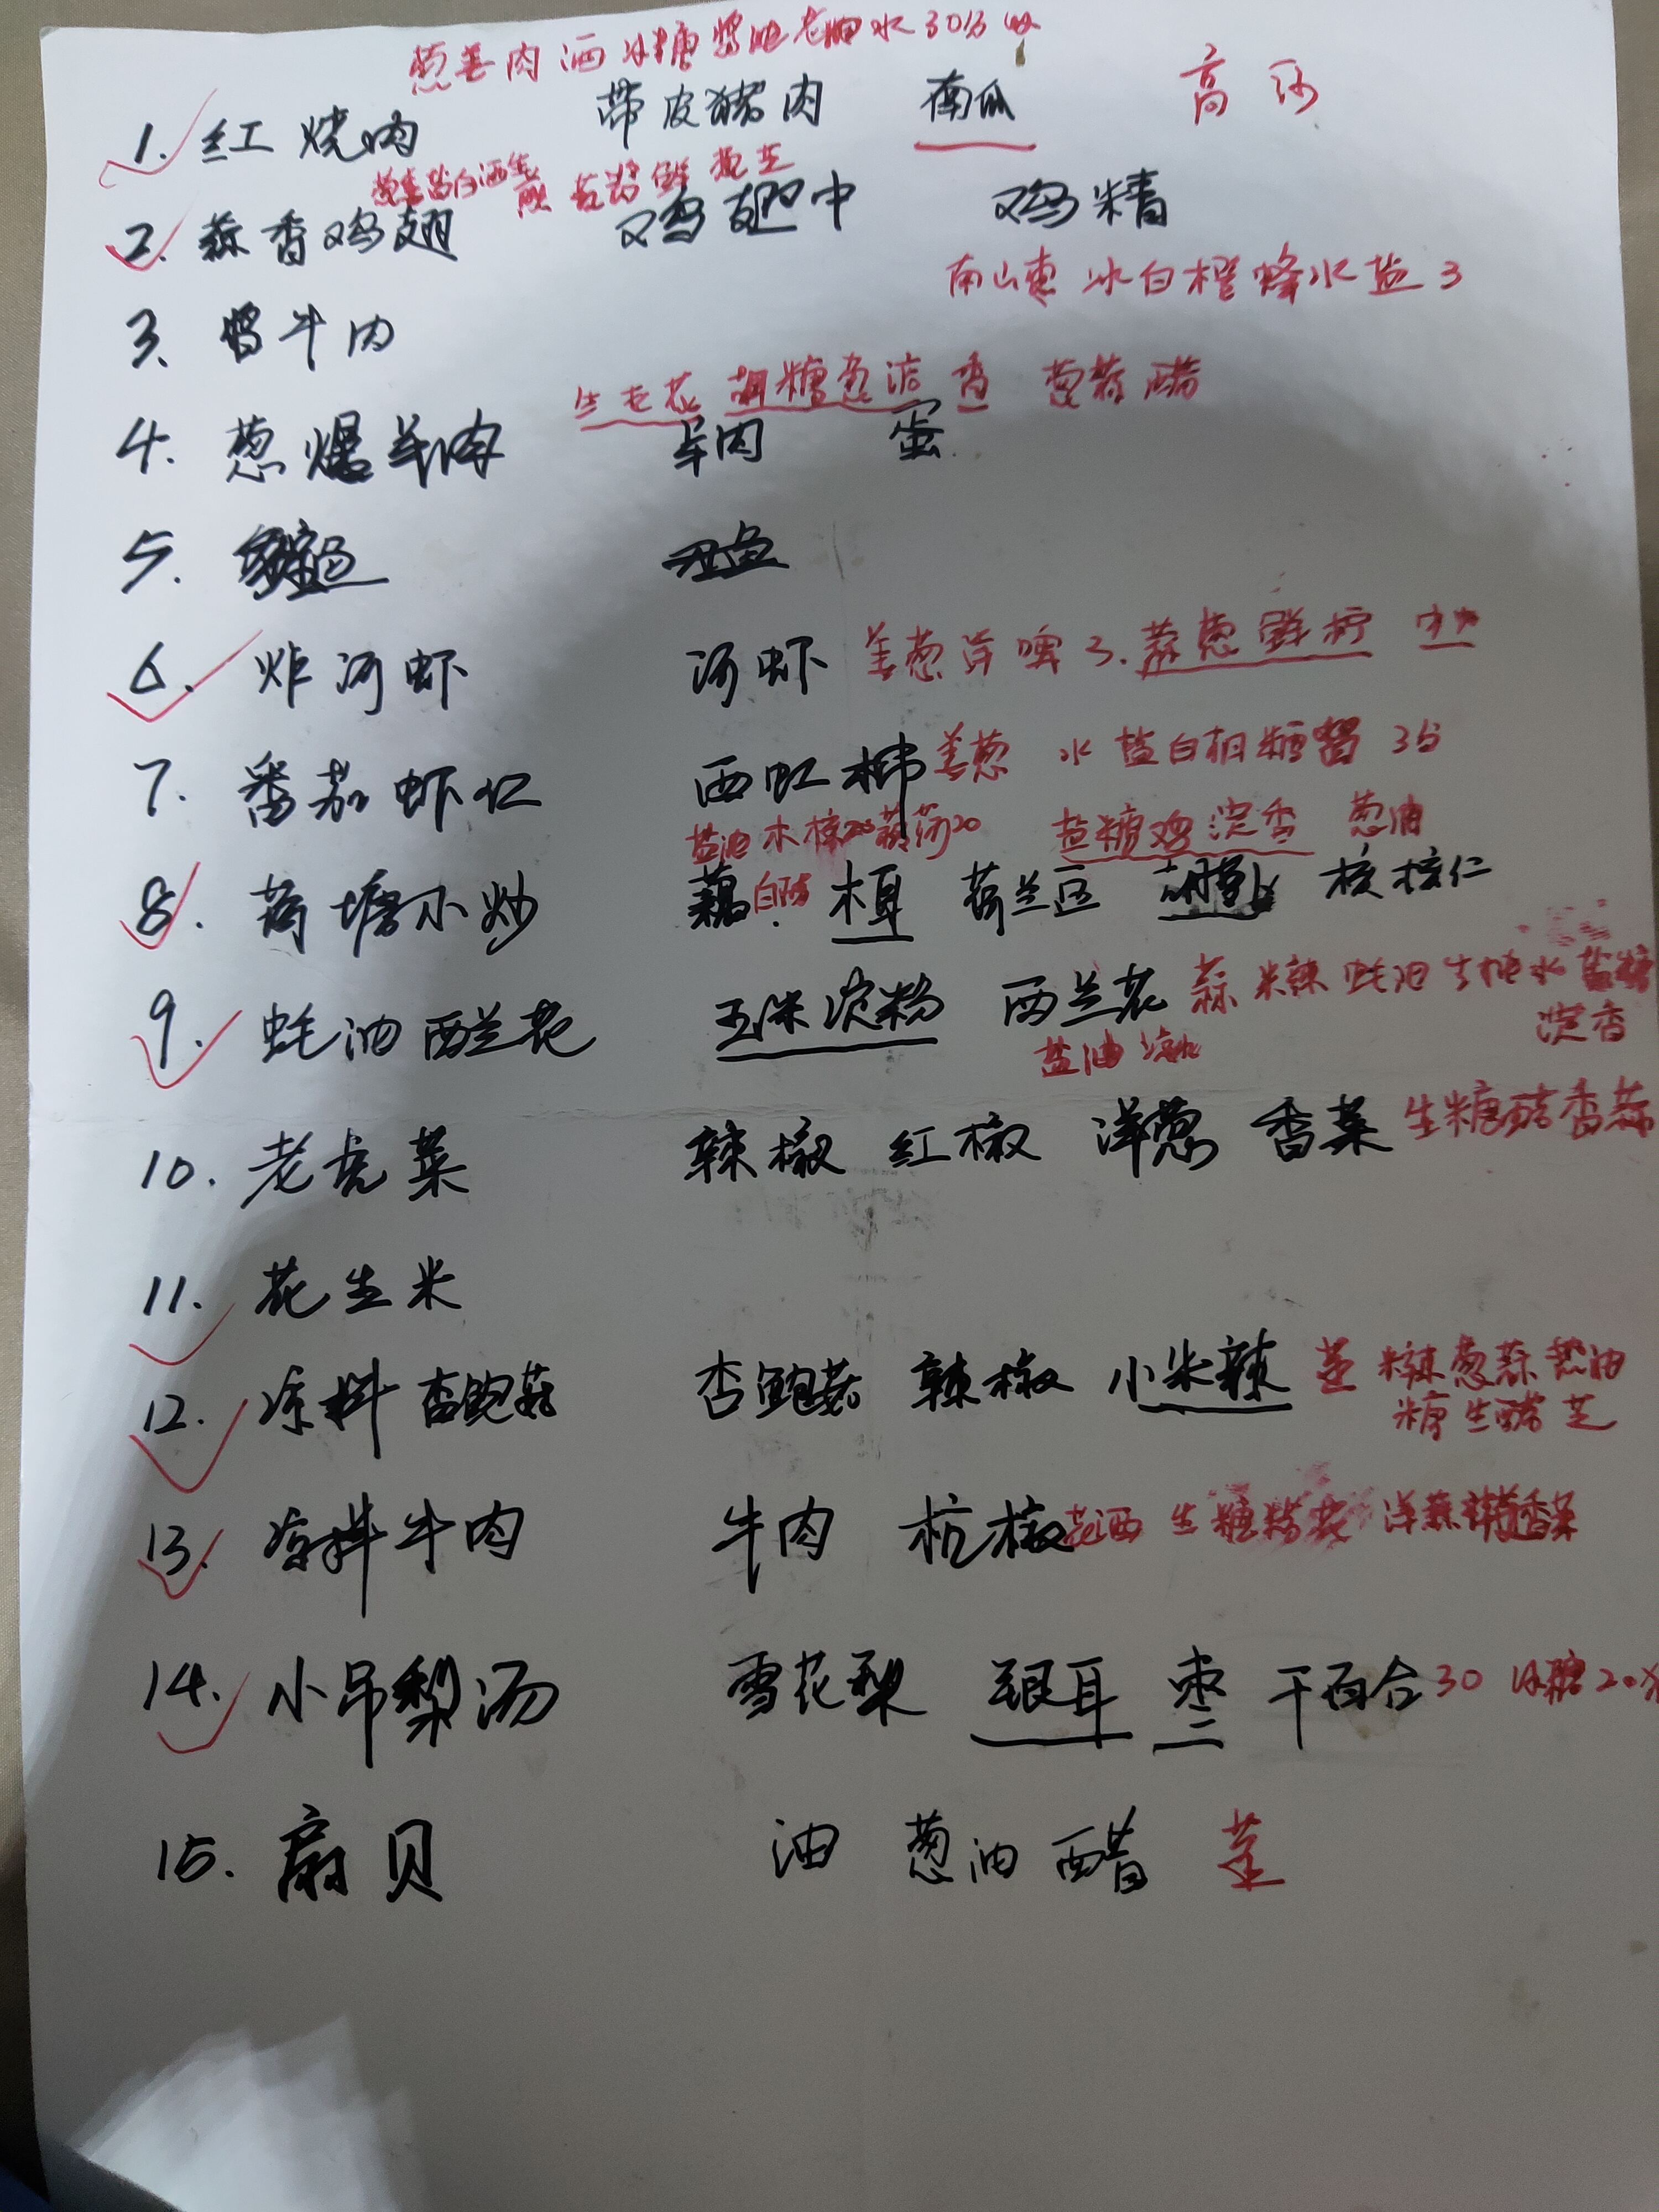 葱姜肉酒冰糖酱油老抽水30分
1. 红烧肉 带皮猪肉 南瓜 高
2. 蒜香鸡翅 鸡翅中 鸡精
南山枣 冰白橙蜂水盐3
3. 酱牛肉
葱蒜醋
4. 葱爆羊肉 羊肉 蛋
5.
6. 炸河虾 河虾 姜葱 啤3.蒜葱鲜柠
7. 番茄虾仁 西红柿 姜葱 水盐白胡糖 3分
盐油木 盐糖鸡淀香 葱油
8. 荷塘小炒 藕 白 木耳 荷兰豆 胡萝卜 核桃仁
9. 蚝油西兰花 玉米淀粉 西兰花 蒜 米辣 蚝油生抽水盐糖
盐油 淀香
10. 老虎菜 辣椒 红椒 洋葱 香菜 生糖醋香蒜
11. 花生米
12. 凉拌杏鲍菇 杏鲍菇 辣椒 小米辣 蒸 辣葱蒜热油
糖生醋芝
13. 凉拌牛肉 牛肉 杭椒 生糖 香菜
14. 小吊梨汤 雪花梨 银耳 枣 干百合 30 冰糖20
15. 扇贝 油 葱油 醋